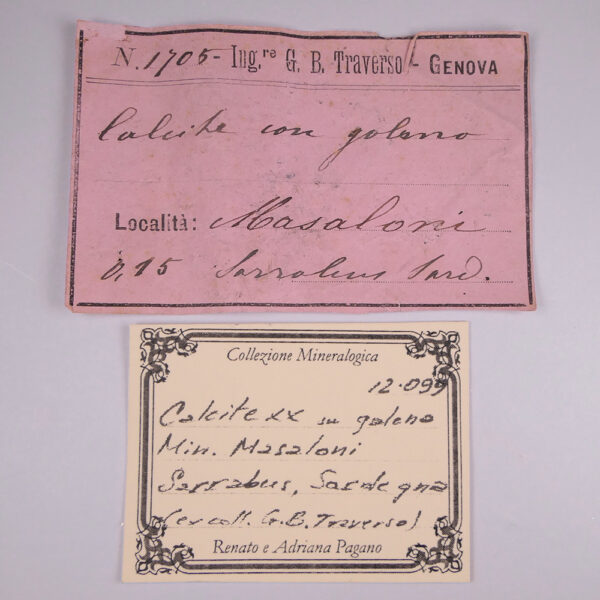 N. 1705 - Ing.re G. B. Traverso - GENOVA
Calcite con galena
Località: Masaloni
0,15 Sarrabus Sard.
Collezione Mineralogica
12.099
Calcite xx su galena
Min. Masaloni
Sarrabus, Sardegna
(ex coll. G.B. Traverso)
Renato e Adriana Pagano